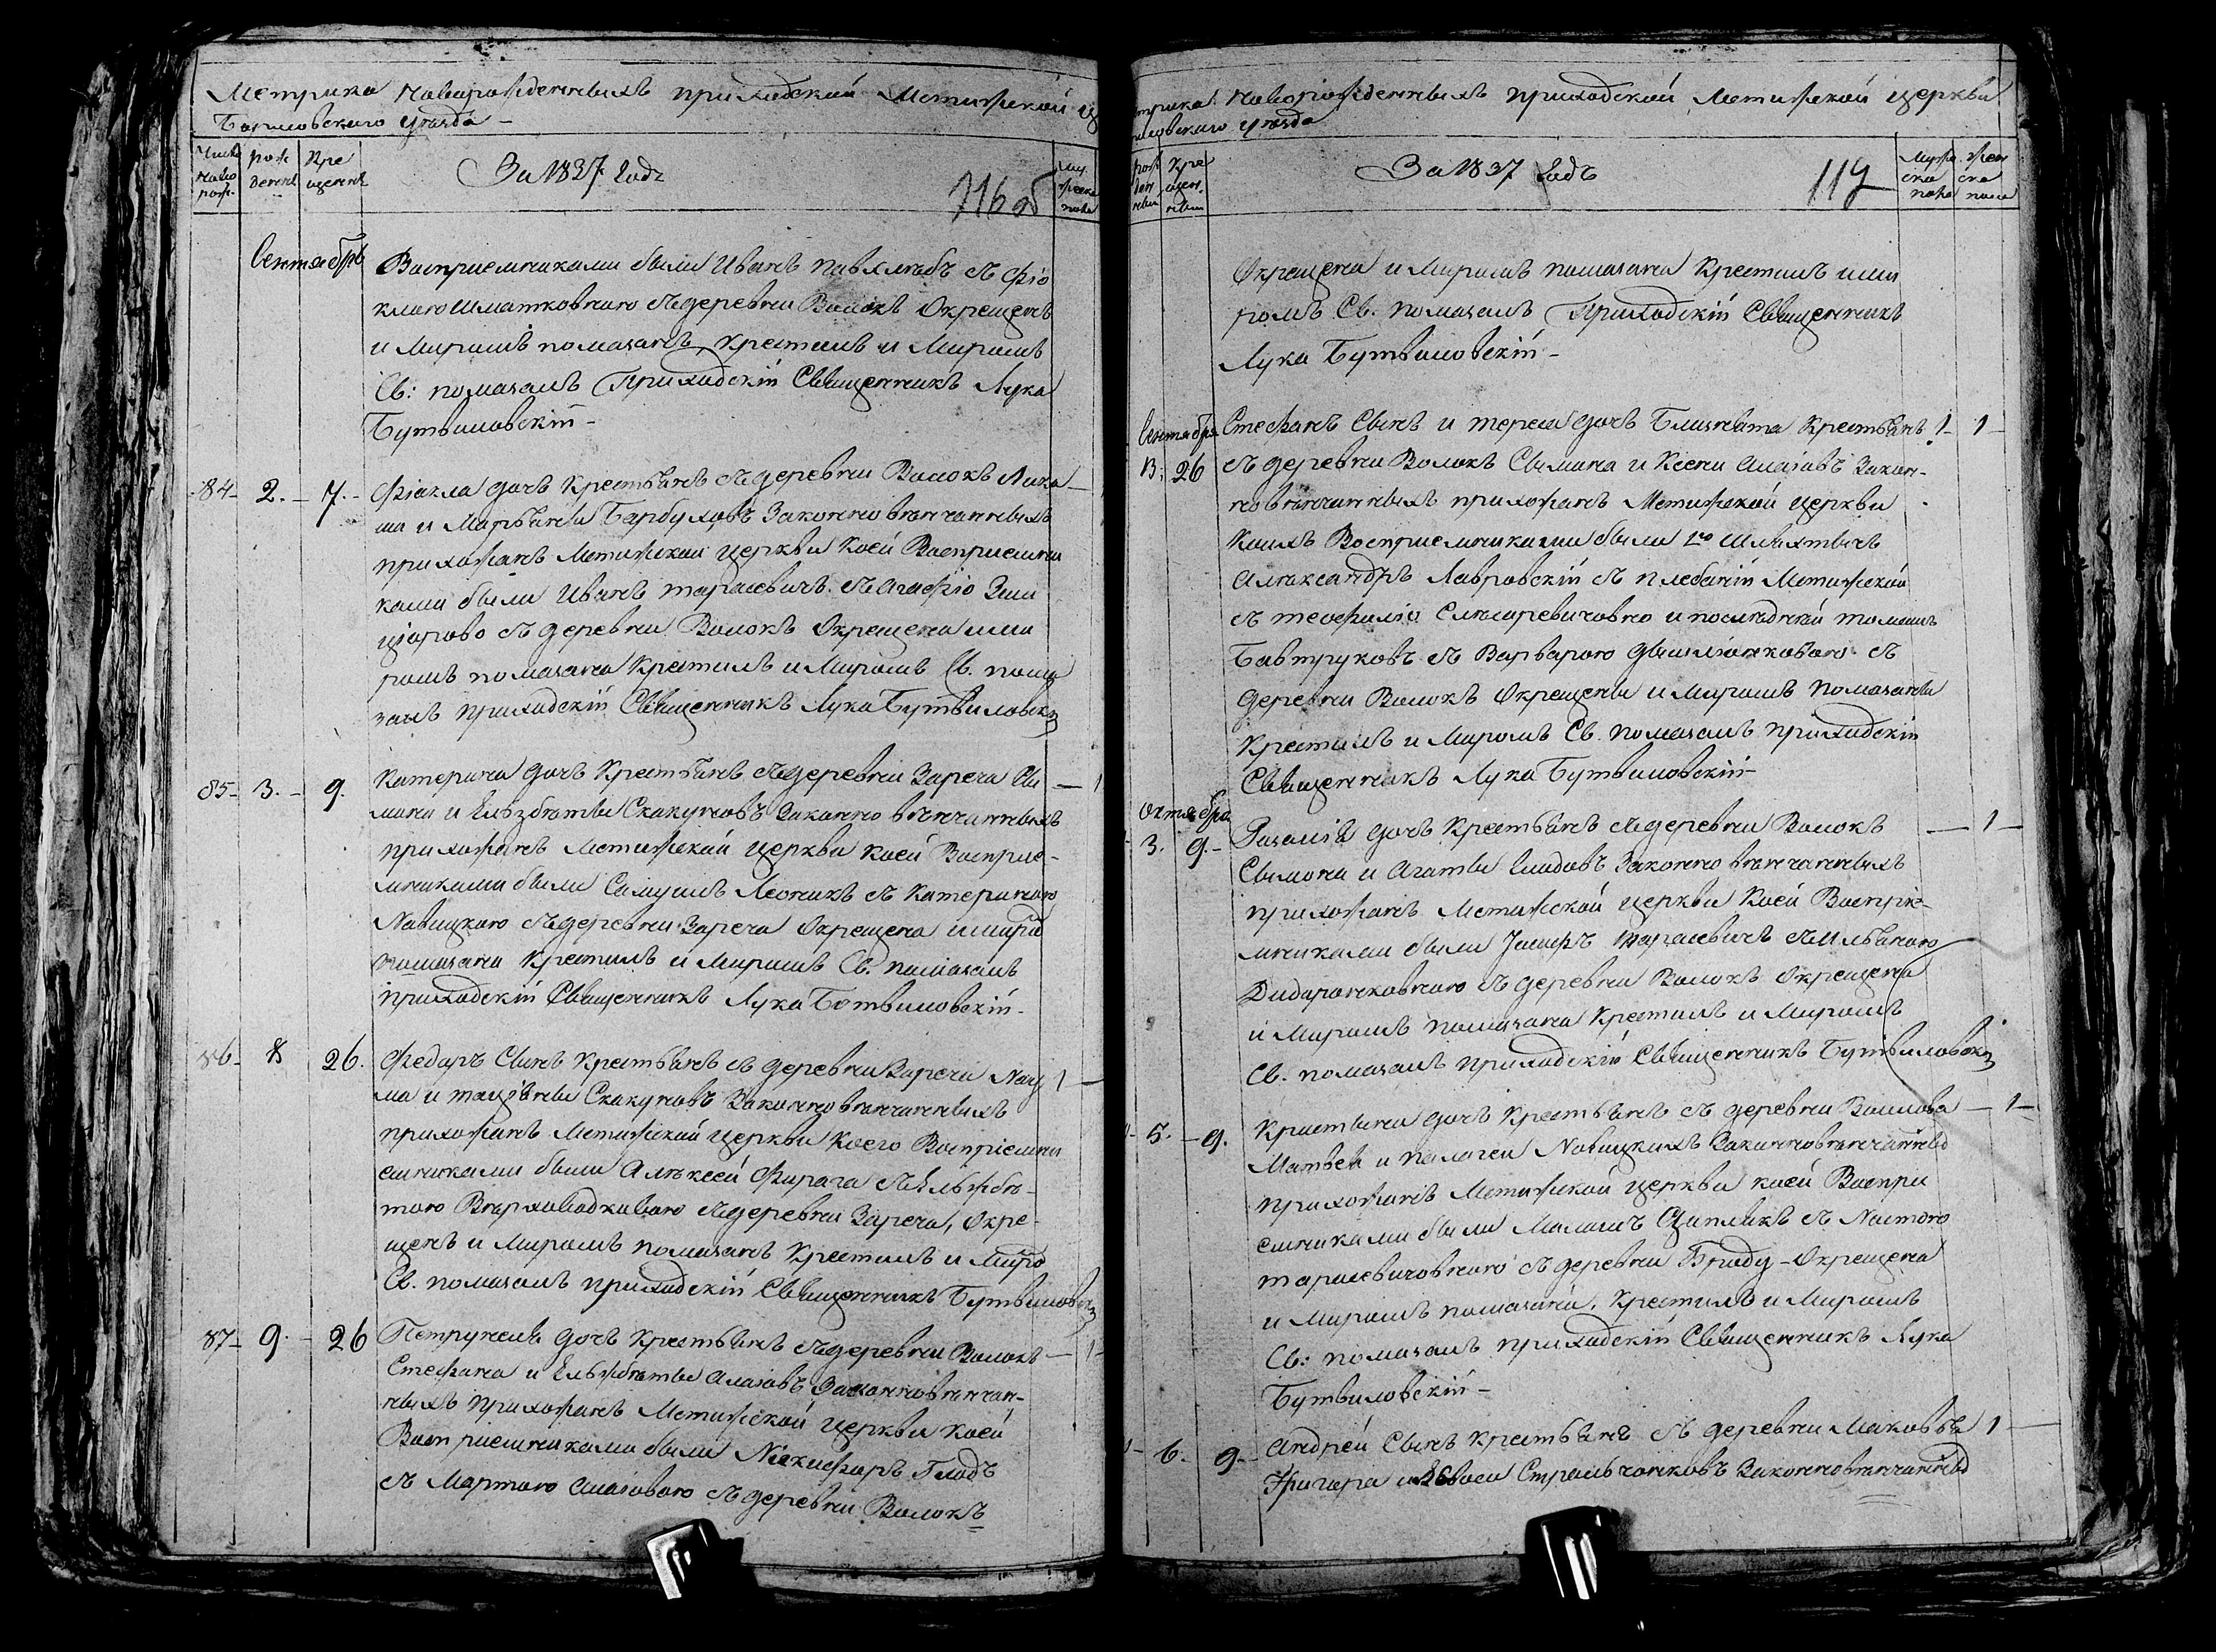 Метрика Новорожденныхъ приходской Метижской ц
Борисовскаго уѣзда –
Число Ново рож.
рож денія
Кре щенія
За 1837 Годъ
116 об
Муж ческа пола
Сентябрь
Восприемниками были Иванъ
съ деревни Волокъ Окрещенъ
и Миромъ помазанъ, крестилъ и Миромъ
Св: помазалъ Приходскій Священникъ Лука
Бутвиловскій –
84 – 2. – 7. – Фіокла дочь Крестьянъ съ деревни Волокъ –
и Марьяны Законно венчанныхъ
прихожанъ Метижской церкви коей Восприемни
ками были Иванъ Тарасевичъ съ Агафіо
съ деревни Волокъ Окрещена и ми
ромъ помазана Крестилъ и Миромъ Св. пома
залъ приходскій Священникъ Лука Бутвиловскій
85 – 3. – 9. Катерина дочь Крестьянъ съ деревни Зареча Сы – 1
мона и Елѣзбѣты Скакуновъ Законно вѣнчанныхъ
прихожанъ Метижской церкви коей Восприе-
мниками были Самуилъ Леоникъ съ Катериною
Новицкою съ деревни Зареча Окрещена и миро
помазана Крестилъ и Миромъ Св. помазалъ
приходскій Священникъ Лука Ботвиловскій –
86 – 8 26. Федоръ Сынъ Крестьянъ съ деревни Заречи Нау 1 –
ма и тацiаны Скакуновъ Законно венчанныхъ
прихожанъ Метижской церкви коего Воспріемни
емниками были Алексей Фирага съ Ельжбѣ-
тою съ деревни Зареча, Окре-
щенъ и Миромъ помазанъ Крестилъ и Миро
Св. помазалъ приходскій Священникъ Бутвиловскі
87 – 9. – 26 Петрунеля дочь Крестьянъ съ деревни Волокъ – 1
Стефана и Ельжбѣты Алаiовъ Законно венчан-
ныхъ прихожанъ Метижской церкви коей
Восприемниками были Никифоръ Гладъ
съ Мартою Алаiовою съ деревни Волокъ
трика Новорожденныхъ приходской Метижской церкви
рисовскаго уѣзда
рож ден
Кре щен
За 1837 Годъ
117
Муже ска пола
жен ска пола
Окрещена и Миромъ помазана Крестилъ и ми
ромъ Св. помазалъ Приходскій Священникъ
Лука Бутвиловскій –
Сентября Стефанъ Сынъ и тереса дочь Близнята Крестьянъ 1 – 1 –
26 съ деревни Волокъ Сымона и Ксени Алаiовъ Закон-
но венчанныхъ прихожанъ Метижской церкви
коихъ Восприемниками были 1го Шляхтичъ
Александръ Лавровскій съ плебаніи Метижской
съ теофилiо Слюсаревичовно и последней томашъ
Бавтруковъ съ Варварою съ
деревни Волокъ Окрещены и Миромъ помазаны
Крестилъ и Миромъ Св. помазалъ приходскій
Священникъ Лука Бутвиловскій –
Октября
3. 9. – Розалія дочь Крестьянъ съ деревни Волокъ – 1 –
Сымона и Агаты Гладовъ Законно венчанныхъ
прихожанъ Метижской церкви коей Воспріе-
мниками были Іосифъ Тарасевичъ съ Ульяною
съ деревни Волокъ Окрещена
и Миромъ помазана Крестилъ и Миромъ
Св. помазалъ приходскій Священникъ Бутвиловскі
5. – 9. Кристына дочь Крестьянъ съ деревни Воилова – 1 –
Матвея и Пологеи Новицкихъ Законно венчанныхъ
прихожанъ Метижской церкви коей Воспри
емниками были съ Настою
тарасевичовною съ деревни Броду – Окрещена
и Миромъ помазана, Крестилъ и Миромъ
Св: помазалъ приходскій Священникъ Лука
Бутвиловскій –
6. 9. – Андрей Сынъ Крестьянъ съ деревни Маковья 1 –
Григора и Евы Стральчонковъ Законно венчанныхъ